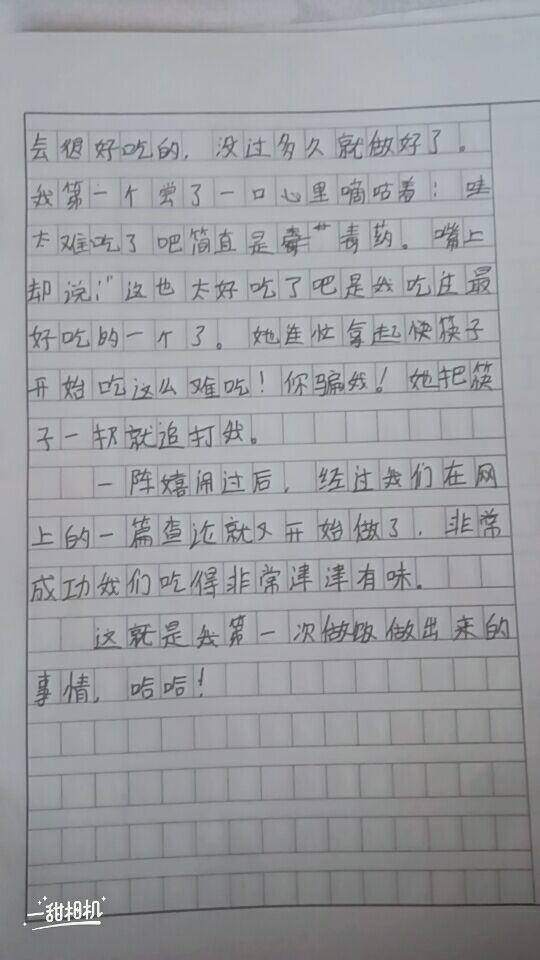 会很好吃的，没过多久就做好了。
我第一个尝了一口心里嘀咕着：哇
太难吃了吧简直是毒药。嘴上
却说：“这也太好吃了吧是我吃过最
好吃的一个了。她连忙拿起快筷子
开始吃这么难吃！你骗我！她把筷
子一扔就追打我。
一阵嬉闹过后，经过我们在网
上的一篇查论就又开始做了，非常
成功我们吃得非常津津有味。
这就是我第一次做饭做出来的
事情，哈哈！
一甜相机